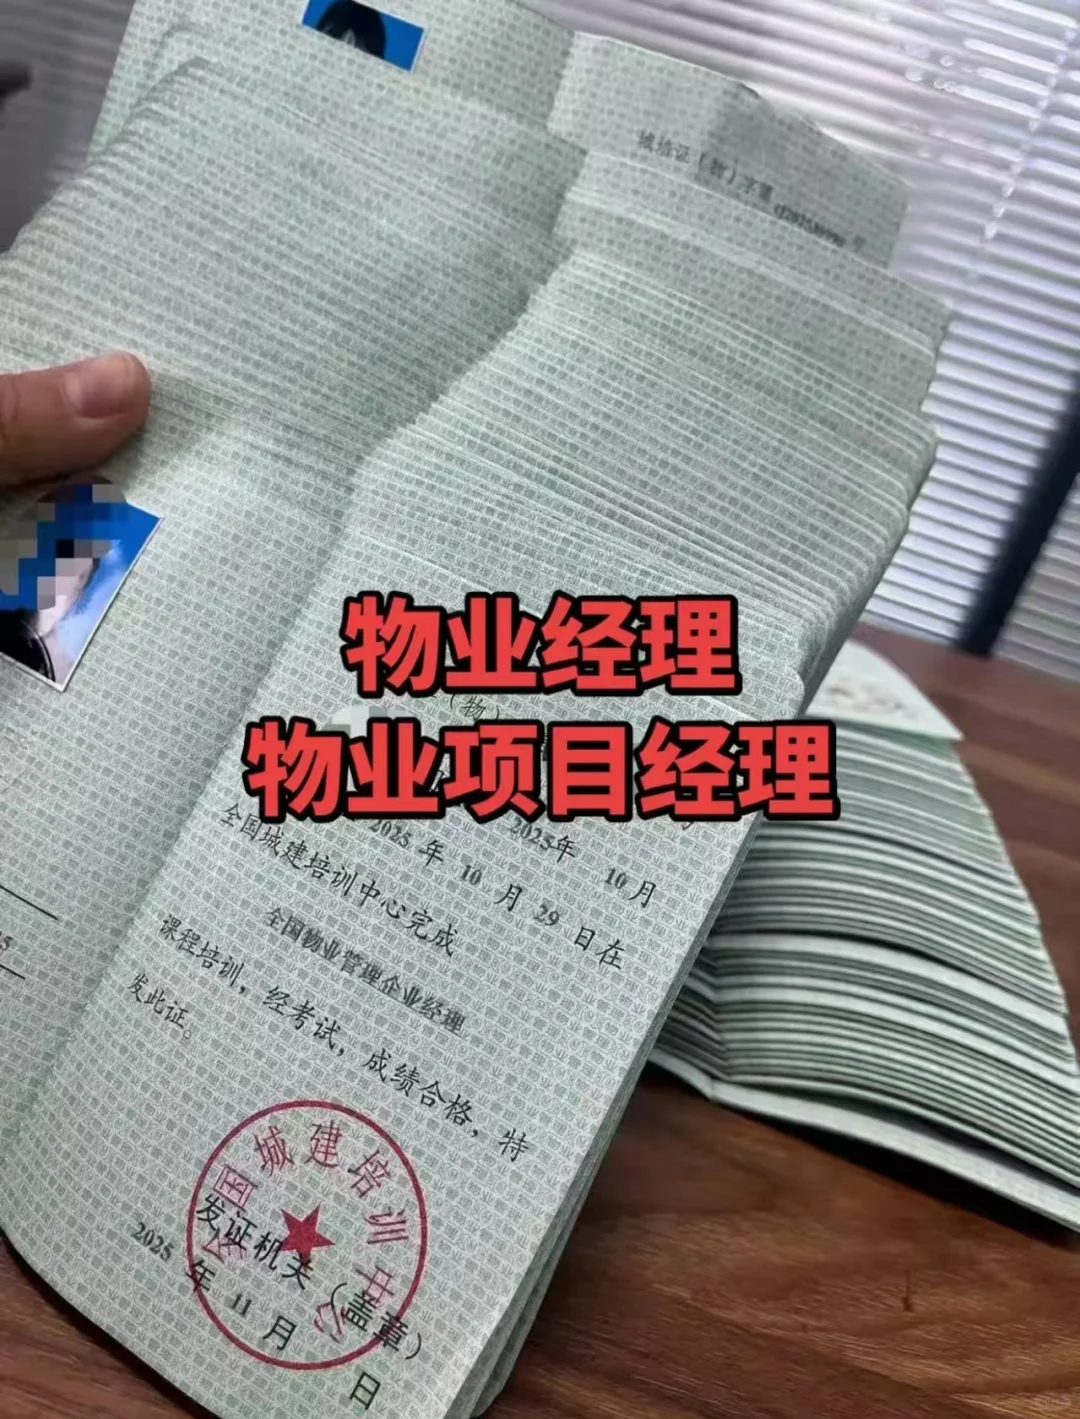 城培证（物）字第
物业经理
（物）
物业项目经理
2025年 10月
2025 年 10 月 29 日在
全国城建培训中心完成
全国物业管理企业经理
课程培训，经考试，成绩合格，特
发此证。
全国城建培训中心
发证机关（盖章）
2025 年 11 月 日